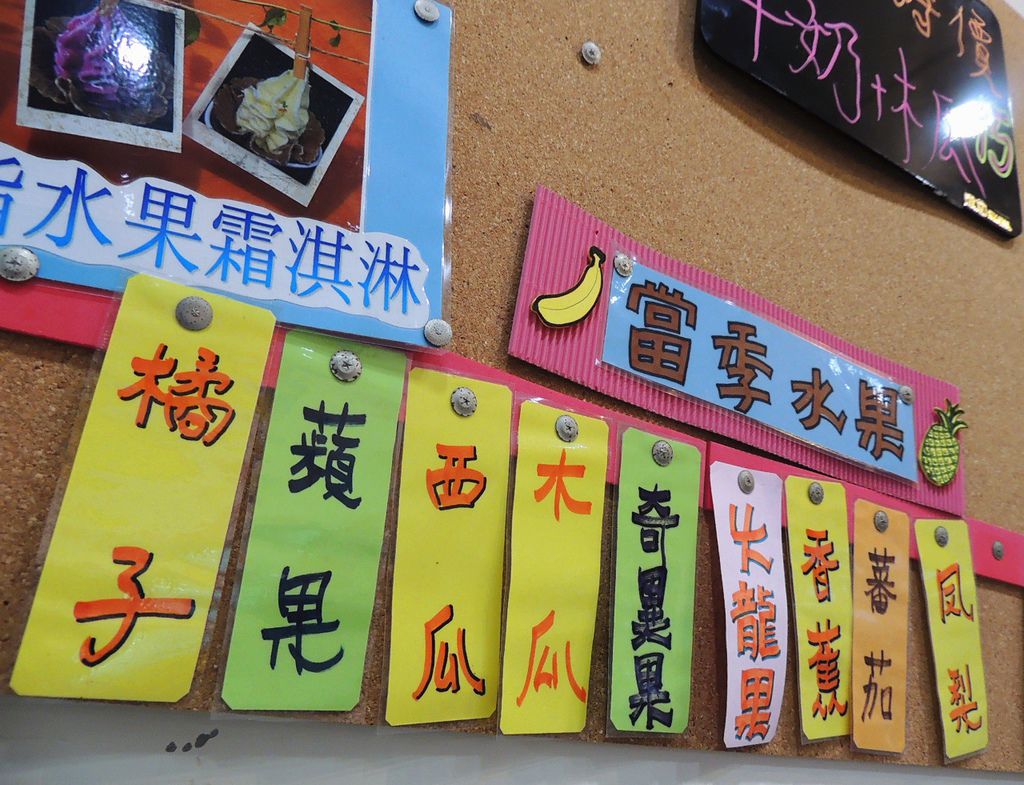 水果霜淇淋
牛奶木瓜
當季水果
橘子
蘋果
西瓜
木瓜
奇異果
火龍果
香蕉
蕃茄
凤梨